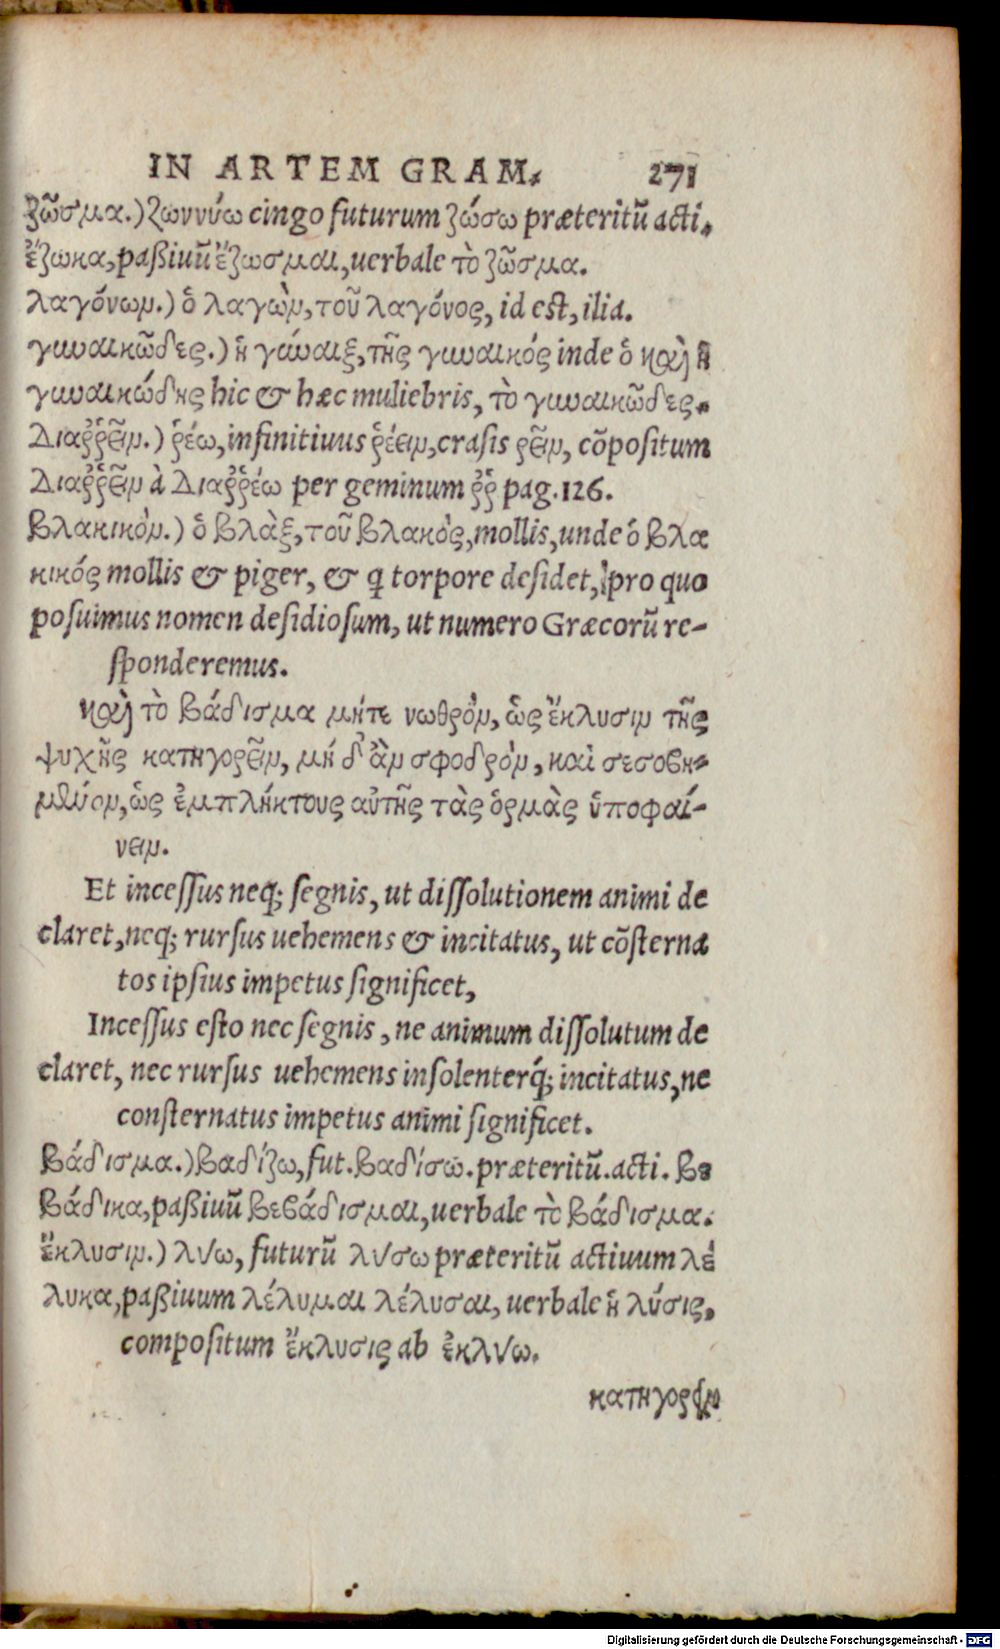 IN ARTEM GRAM. 271
ζῶσμα.) ζωννύω cingo futurum ζώσω præteritũ acti.
ἔζωκα, paßiuũ ἔζωσμαι, uerbale τὸ ζῶσμα.
λαγόνων.) ὁ λαγὼν, τοῦ λαγόνος, id est, ilia.
γυναικῶδες.) ἡ γύναιξ, τῆς γυναικός inde ὁ καὶ ἡ
γυναικώδης hic & hæc muliebris, τὸ γυναικῶδες.
Διαῤῥεῖν.) ῥέω, infinitiuus ῥέειν, crasis ῥεῖν, cõpositum
Διαῤῥεῖν à Διαῤῥέω per geminum ῤῥ pag. 126.
βλακικόν.) ὁ βλὰξ, τοῦ βλακός, mollis, unde ὁ βλα
κικός mollis & piger, & q torpore desidet, pro quo
posuimus nomen desidiosum, ut numero Græcorũ re-
sponderemus.
καὶ τὸ βάδισμα μήτε νωθρὸν, ὡς ἔκλυσιν τῆς
ψυχῆς κατηγορεῖν, μή δ᾽ ἂν σφοδρὸν, καὶ σεσοβη-
μένον, ὡς ἐμπλήκτους αὐτῆς τὰς ὁρμὰς ὑποφαί-
νειν.
Et incessus neq; segnis, ut dissolutionem animi de
claret, neq; rursus uehemens & incitatus, ut cõsterna
tos ipsius impetus significet,
Incessus esto nec segnis, ne animum dissolutum de
claret, nec rursus uehemens insolenterq́; incitatus, ne
consternatus impetus animi significet.
βάδισμα.) βαδίζω, fut. βαδίσω. præteritũ. acti. βε
βάδικα, paßiuũ βεβάδισμαι, uerbale τὸ βάδισμα.
ἔκλυσιν.) λύω, futurũ λύσω præteritũ actiuum λέ
λυκα, paßiuum λέλυμαι λέλυσαι, uerbale ἡ λύσις.
compositum ἔκλυσις ab ἐκλύω.
κατηγορεῖν
Digitalisierung gefördert durch die Deutsche Forschungsgemeinschaft - DFG